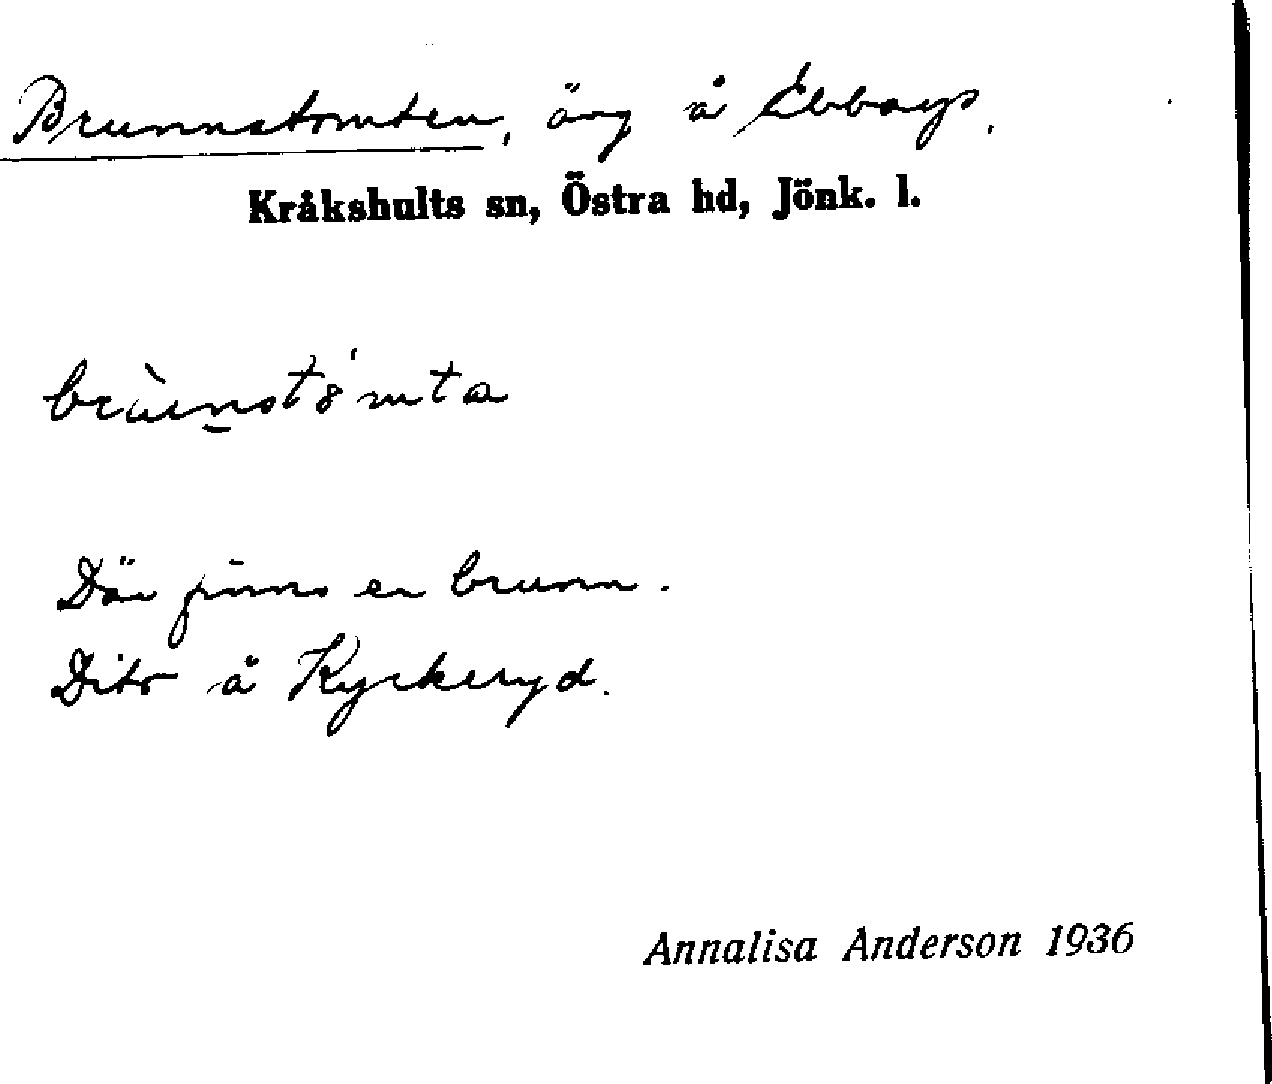 Brunnstomten, äng å Ebbarp.
Kråkshults sn, Östra hd, Jönk. l.
Där finns en brunn.
Dito å Kyckeryd.
Annalisa Anderson 1936